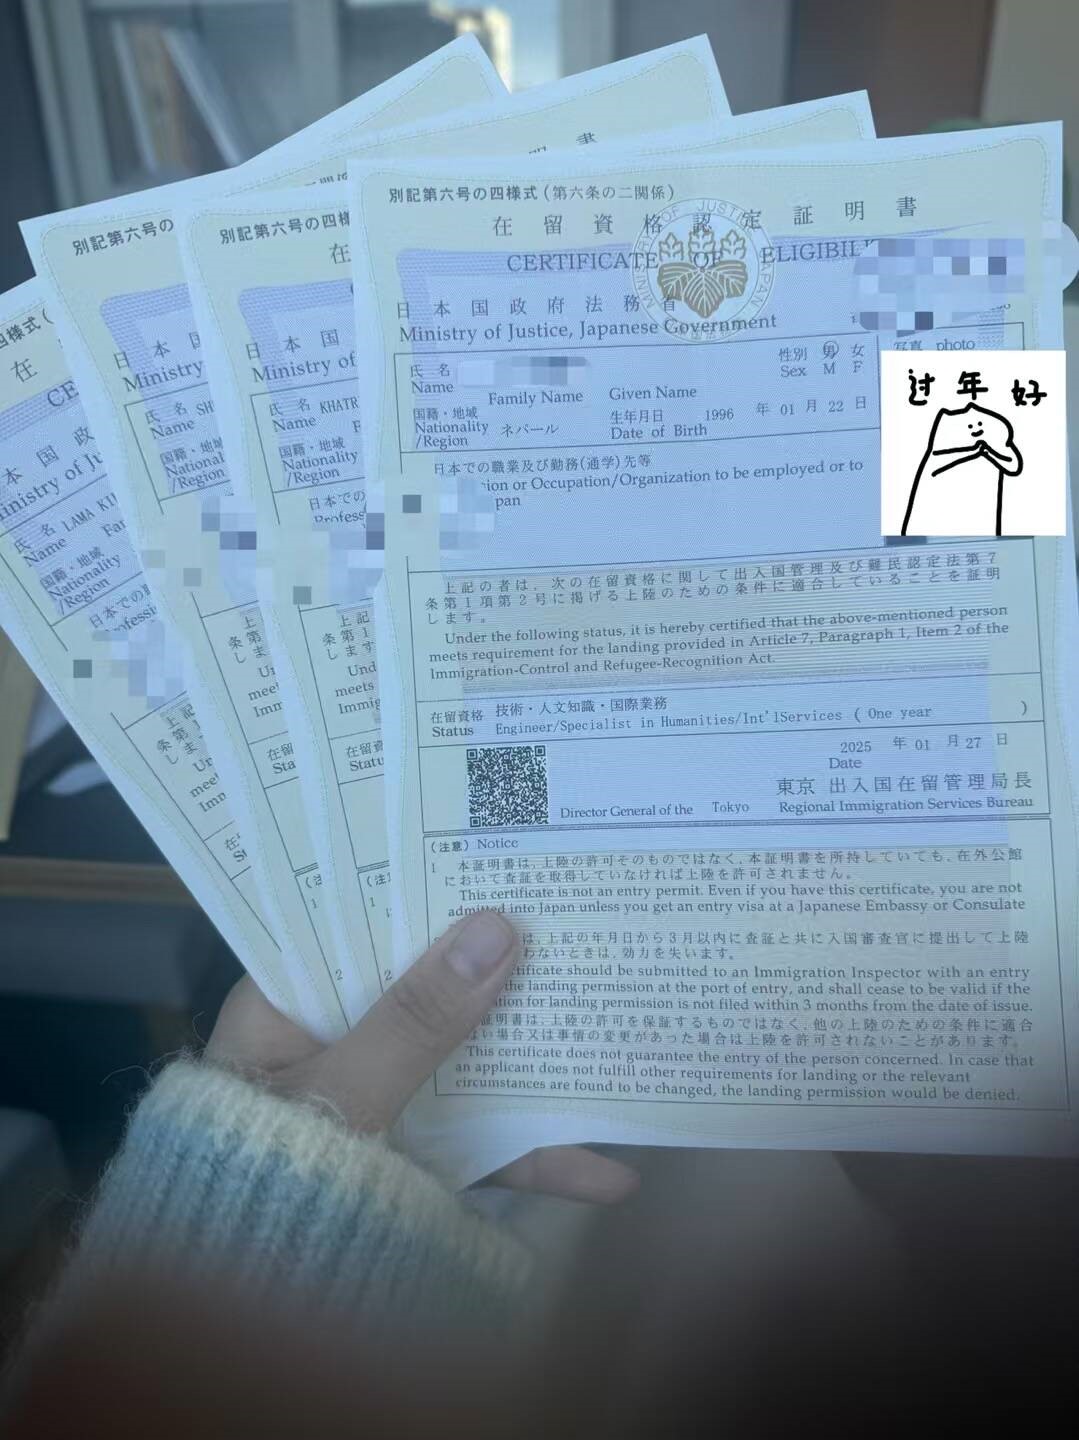 別記第六号の四様式（第六条の二関係）
在留資格認定証明書
CERTIFICATE OF ELIGIBIL
日本国政府法務省
Ministry of Justice, Japanese Government
氏名
Name
Family Name Given Name
性別 男 女
Sex M F
写真 photo
国籍・地域
Nationality
/Region
ネパール
生年月日 1996 年 01 月 22 日
Date of Birth
过年好
日本での職業及び勤務（通学）先等
ion or Occupation/Organization to be employed or to
pan
上記の者は、次の在留資格に関して出入国管理及び難民認定法第7
条第1項第2号に掲げる上陸のための条件に適合していることを証明
します。
Under the following status, it is hereby certified that the above-mentioned person
meets requirement for the landing provided in Article 7, Paragraph 1, Item 2 of the
Immigration-Control and Refugee-Recognition Act.
在留資格 技術・人文知識・国際業務
Status Engineer/Specialist in Humanities/Int'lServices ( One year )
2025 年 01 月 27 日
Date
東京 出入国在留管理局長
Director General of the Tokyo Regional Immigration Services Bureau
（注意）Notice
1 本証明書は、上陸の許可そのものではなく、本証明書を所持していても、在外公館
において査証を取得していなければ上陸を許可されません。
This certificate is not an entry permit. Even if you have this certificate, you are not
admitted into Japan unless you get an entry visa at a Japanese Embassy or Consulate
は、上記の年月日から3月以内に査証と共に入国審査官に提出して上陸
わないときは、効力を失います。
tificate should be submitted to an Immigration Inspector with an entry
the landing permission at the port of entry, and shall cease to be valid if the
tion for landing permission is not filed within 3 months from the date of issue.
証明書は、上陸の許可を保証するものではなく、他の上陸のための条件に適合
ない場合又は事情の変更があった場合は上陸を許可されないことがあります。
This certificate does not guarantee the entry of the person concerned. In case that
an applicant does not fulfill other requirements for landing or the relevant
circumstances are found to be changed, the landing permission would be denied.
別記第六号の四様
在
日本国
Ministry of
氏名 KHATR
Name
国籍・地域
Nationality
/Region
日本での
Profess
上記
条第1
します
Und
meets
Immig
在留資
Statu
別記第六号の
日本国
Ministry
氏名 SH
Name
国籍・地域
National
/Region
在留
Sta
在
CE
Ministry of Ju
氏名 LAMA KI
Name Far
国籍・地域
Nationality
/Region
日本での職
rofessi